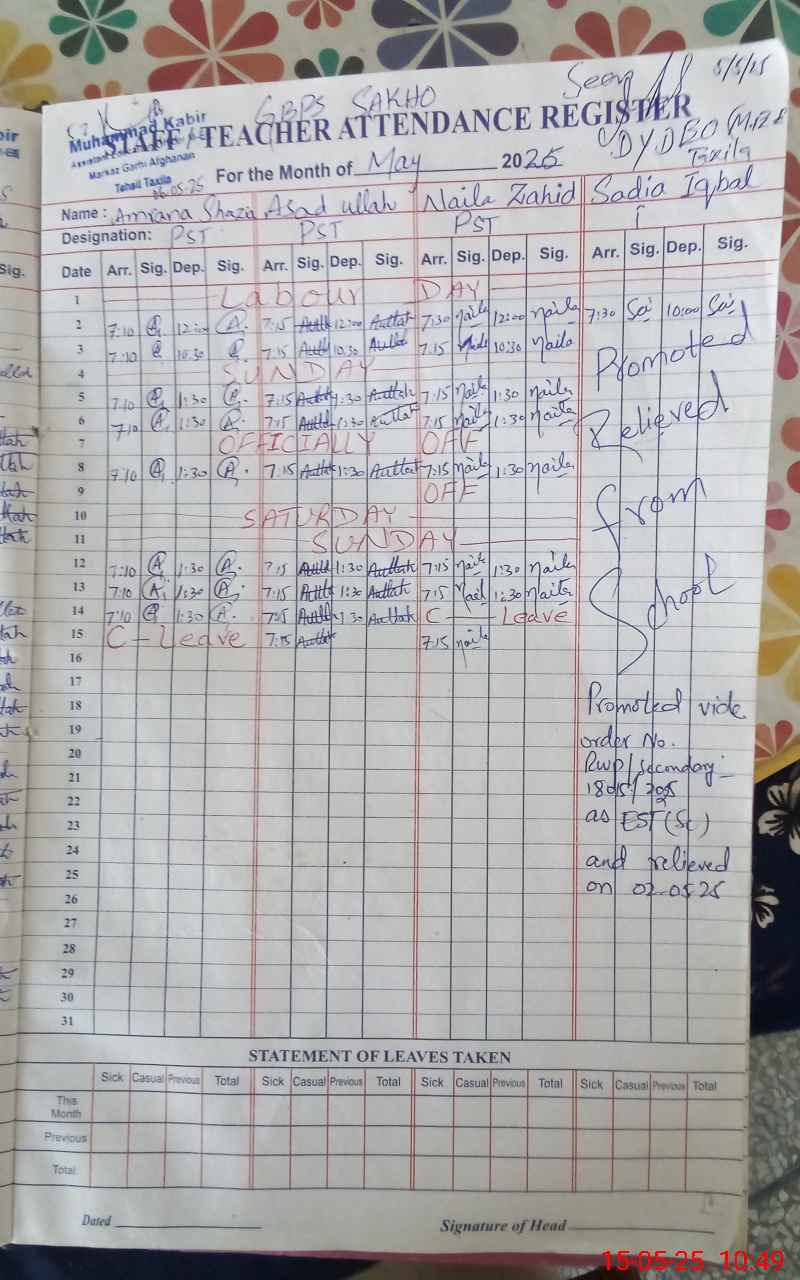 Seen 5/5/25
GBPS SAKHO
Muhammad Kabir
Markaz Garhi Afghanan
Tehsil Taxila
06.05.25
STAFF / TEACHER ATTENDANCE REGISTER
DYDEO (M.EE
Taxila
For the Month of May 2025
Name : Amrana Shazia Asad ullah Naila Zahid Sadia Iqbal
Designation: PST PST PST
Date Arr. Sig. Dep. Sig. Arr. Sig. Dep. Sig. Arr. Sig. Dep. Sig. Arr. Sig. Dep. Sig.
1 Labour DAY
2 7:10 A. 12:00 A. 7:15 12:00 7:30 Naila 12:00 Naila 7:30 10:00
3 7:10 10:30 7:15 10:30 7:15 Naila 10:30 Naila Promoted
4 SUNDAY
5 7:10 1:30 7:15 1:30 7:15 Naila 1:30 Naila
6 7:10 A. 1:30 A. 7:15 1:30 7:15 Naila 1:30 Naila Relieved
7 OFFICIALLY OFF
8 7:10 A. 1:30 A. 7:15 1:30 7:15 Naila 1:30 Naila
9 OFF from
10 SATURDAY
11 SUNDAY
12 7:10 A. 1:30 A. 7:15 1:30 7:15 Naila 1:30 Naila
13 7:10 A. 1:30 A. 7:15 1:30 7:15 Naila 1:30 Naila School
14 7:10 1:30 A. 7:15 1:30 C - Leave
15 C - Leave 7:15 7:15 Naila
16
17
18 Promoted vide
19 order No.
20
21 Rwp/Secondary-
22 1805/2025
23 as EST(Sc)
24
25 and relieved
26 on 02.05.25
27
28
29
30
31
STATEMENT OF LEAVES TAKEN
Sick Casual Previous Total Sick Casual Previous Total Sick Casual Previous Total Sick Casual Previous Total
This Month
Previous
Total:
Dated Signature of Head
15-05-25 10:49